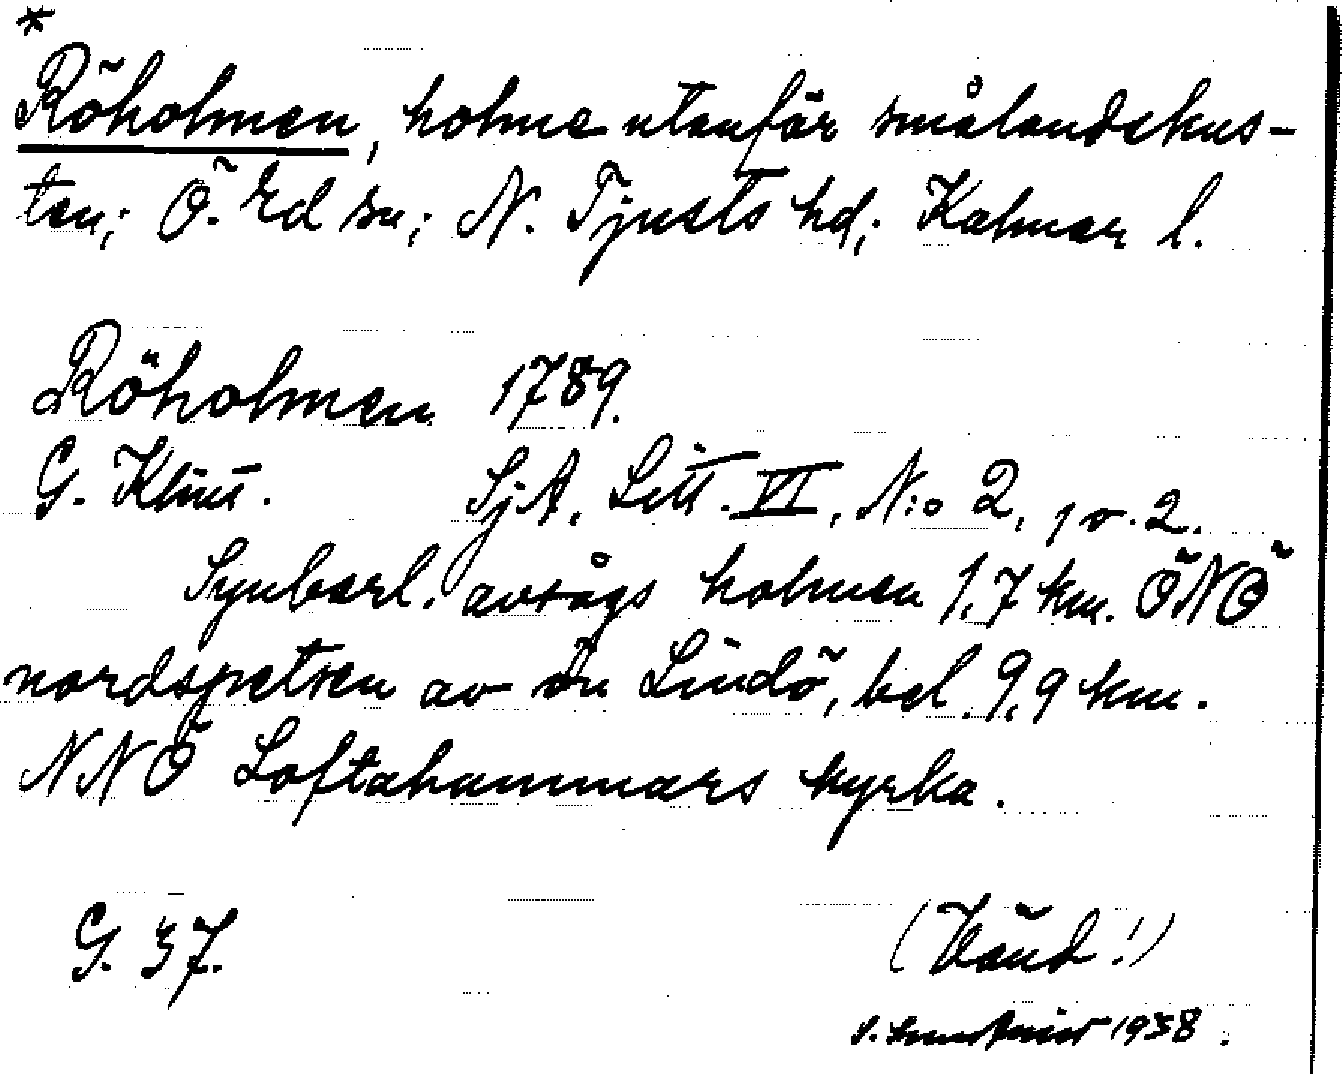 *
Röholmen, holme utanför smålandskus-
ten; Ö. Ed sn; N. Tjusts hd; Kalmar l.
Röholmen 1789.
G. Klint. SjA, Litt. VI, N:o 2, 1 o. 2.
Synbarl. avsågs holmen 1,7 km. ÖNÖ
nordspetsen av ön Lindö, bel. 9,9 km.
NNÖ Loftahammars kyrka.
G. 37.
(Vänd!)
1938.